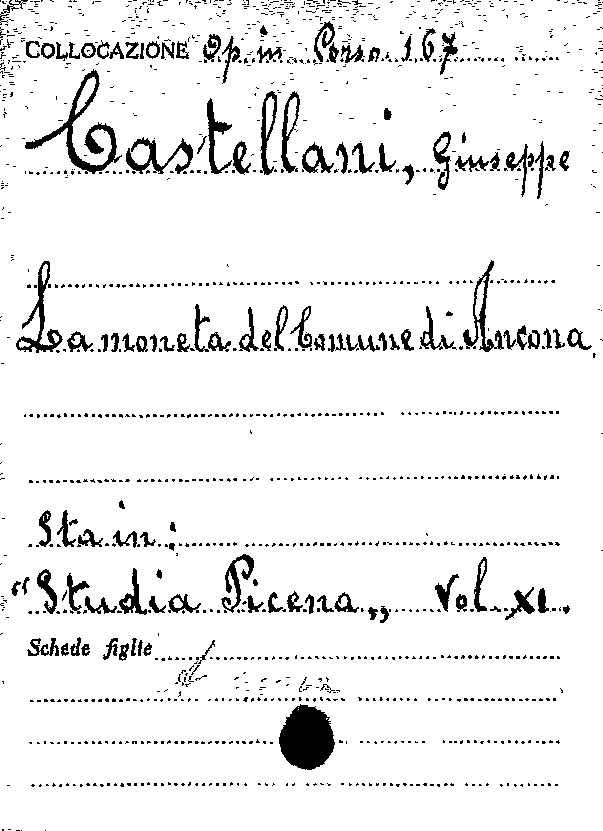 COLLOCAZIONE Op. in Porso 167
Castellani, Giuseppe
La moneta del Comune di Ancona
Sta in:
"Studia Picena„ Vol XI.
Schede figlie